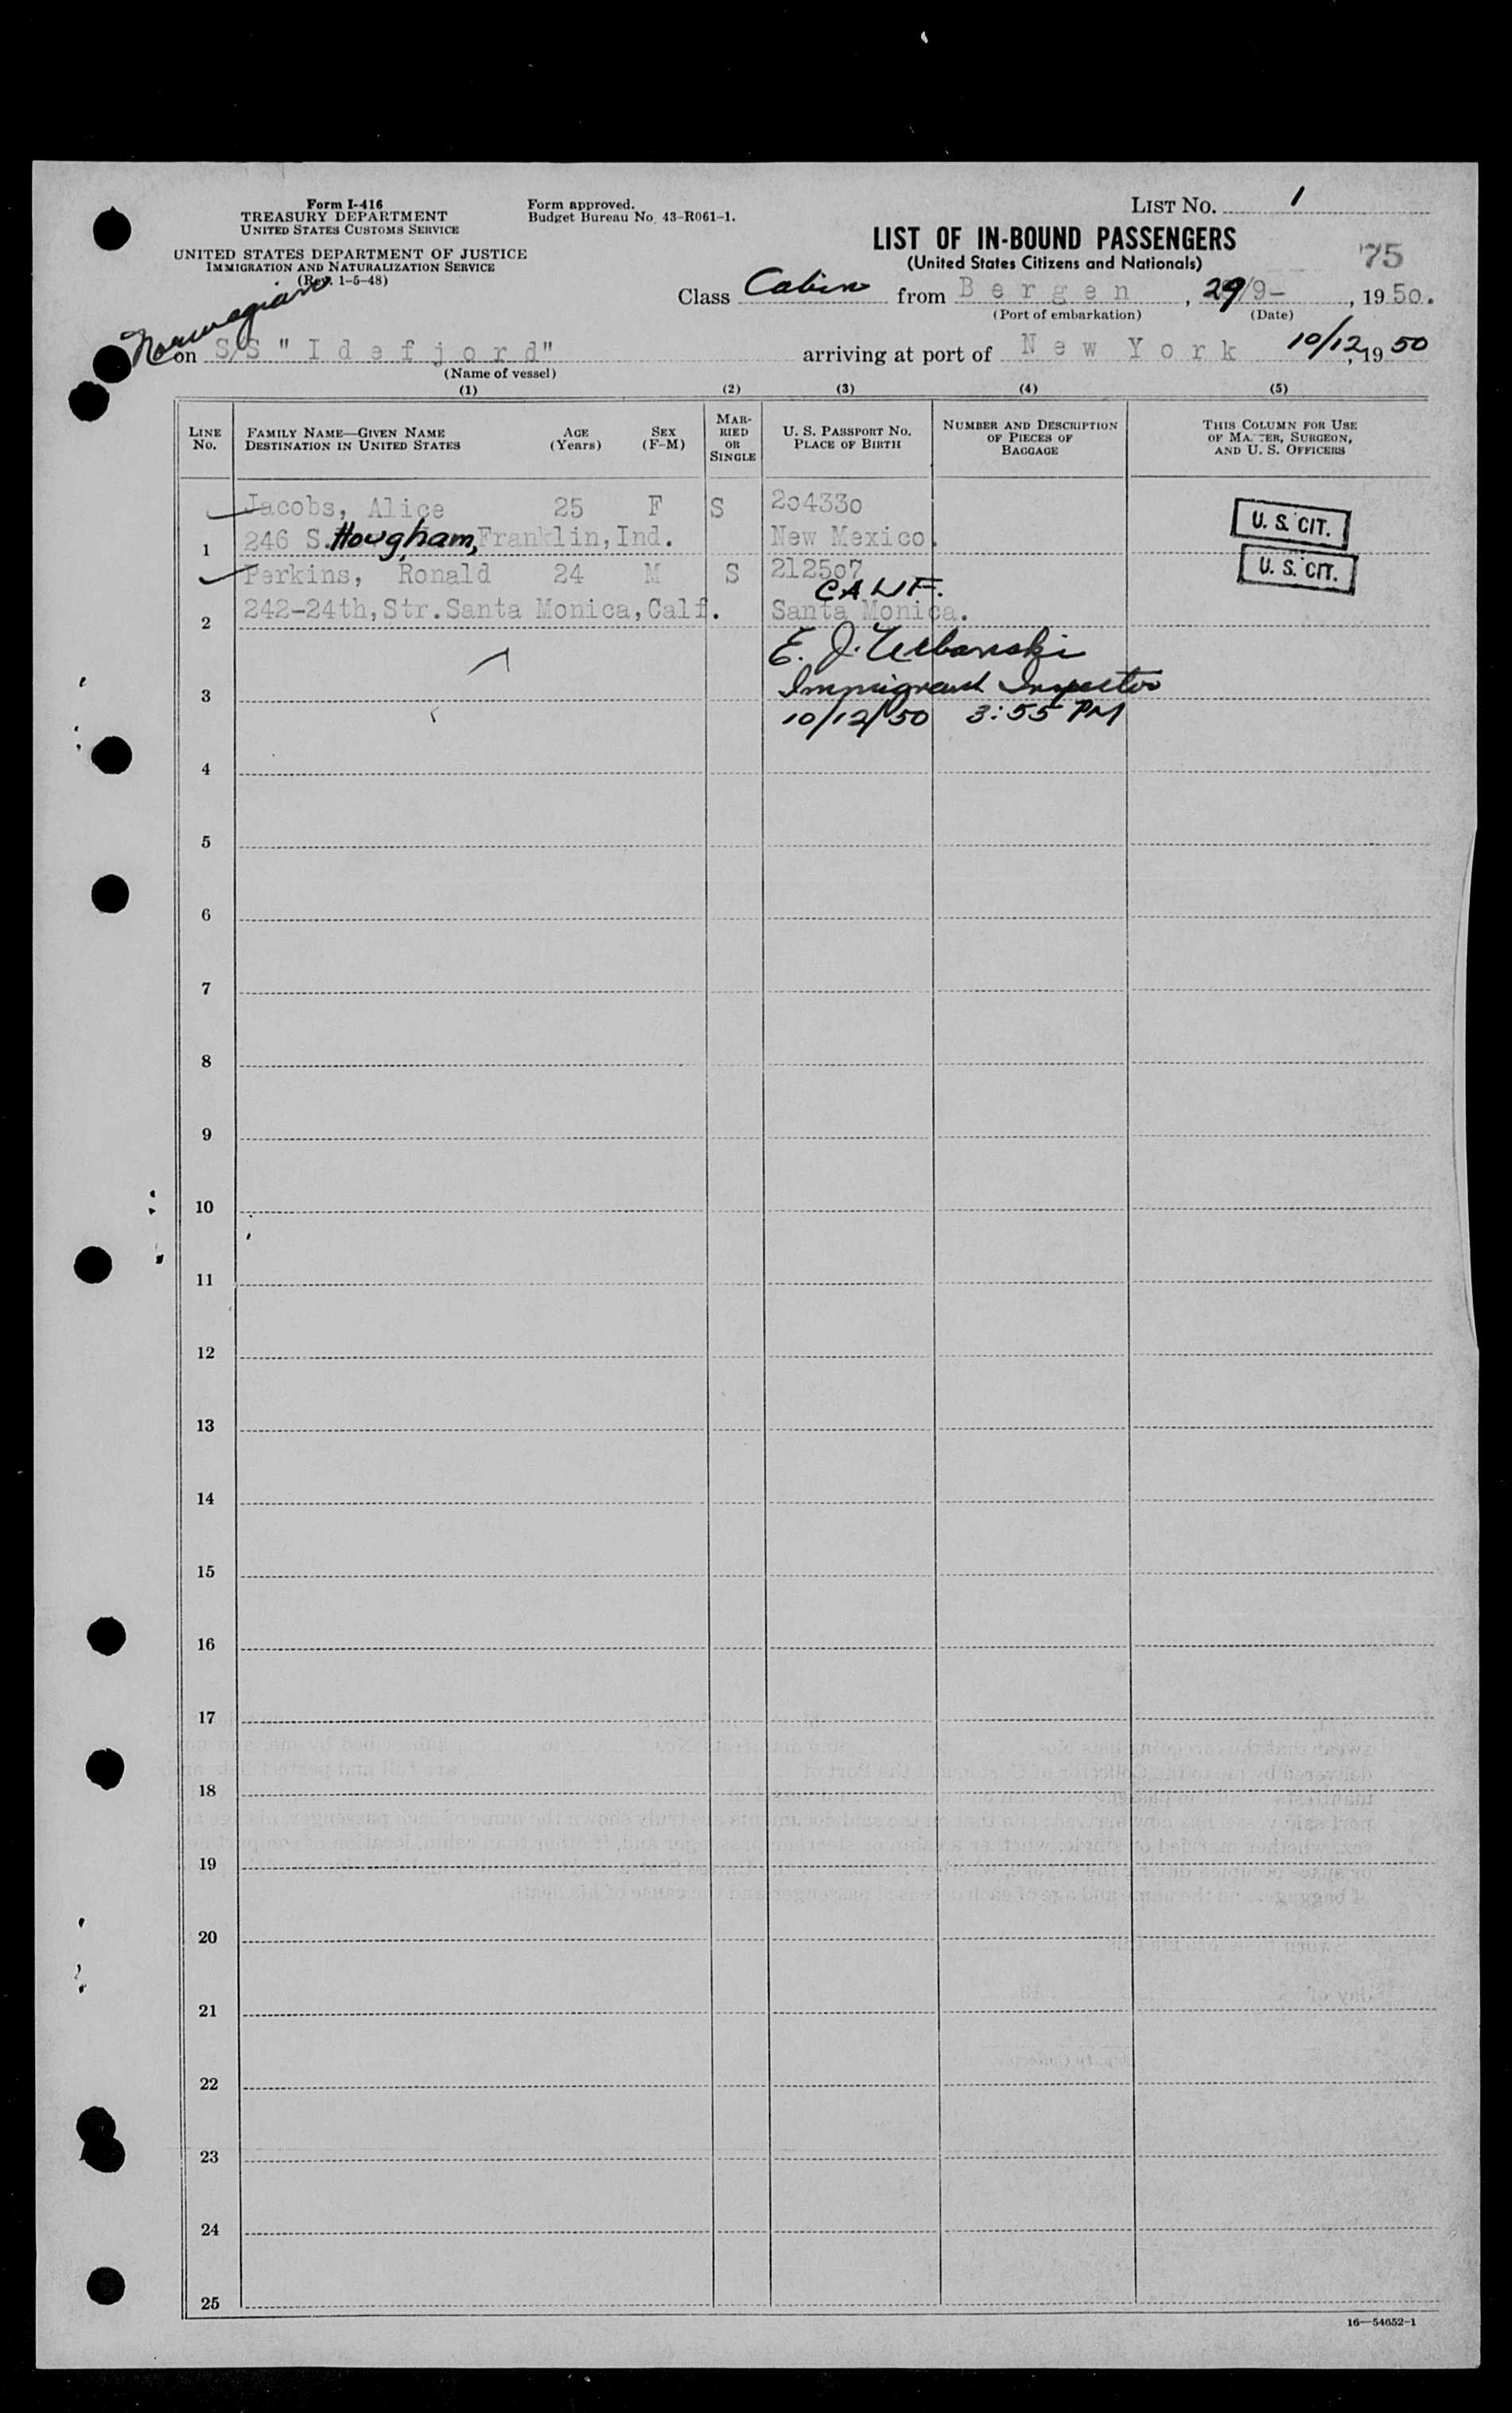 Form I-416
TREASURY DEPARTMENT
UNITED STATES CUSTOMS SERVICE
UNITED STATES DEPARTMENT OF JUSTICE
IMMIGRATION AND NATURALIZATION SERVICE
(Rev. 1-5-48)
Form approved.
Budget Bureau No. 43-R061-1.
LIST No. 1
LIST OF IN-BOUND PASSENGERS
(United States Citizens and Nationals)
75
Class Cabin from Bergen, 29/9-, 1950.
(Port of embarkation) (Date)
Norwegian
on S/S "Idefjord" arriving at port of New York 10/12, 1950
(Name of vessel)
(1) (2) (3) (4) (5)
LINE No. FAMILY NAME—GIVEN NAME DESTINATION IN UNITED STATES AGE (Years) SEX (F-M) MARRIED OR SINGLE U. S. PASSPORT No. PLACE OF BIRTH NUMBER AND DESCRIPTION OF PIECES OF BAGGAGE THIS COLUMN FOR USE OF MASTER, SURGEON, AND U. S. OFFICERS
Jacobs, Alice 25 F S 2o433o U. S. CIT.
1 246 S. Hougham, Franklin, Ind. New Mexico.
Perkins, Ronald 24 M S 2125o7 U. S. CIT.
CALIF.
2 242-24th, Str. Santa Monica, Calf. Santa Monica.
E. J. Urbanski
3 Immigrant Inspector
10/12/50 3:55 PM
4
5
6
7
8
9
10
11
12
13
14
15
16
17
18
19
20
21
22
23
24
25
16—54652-1